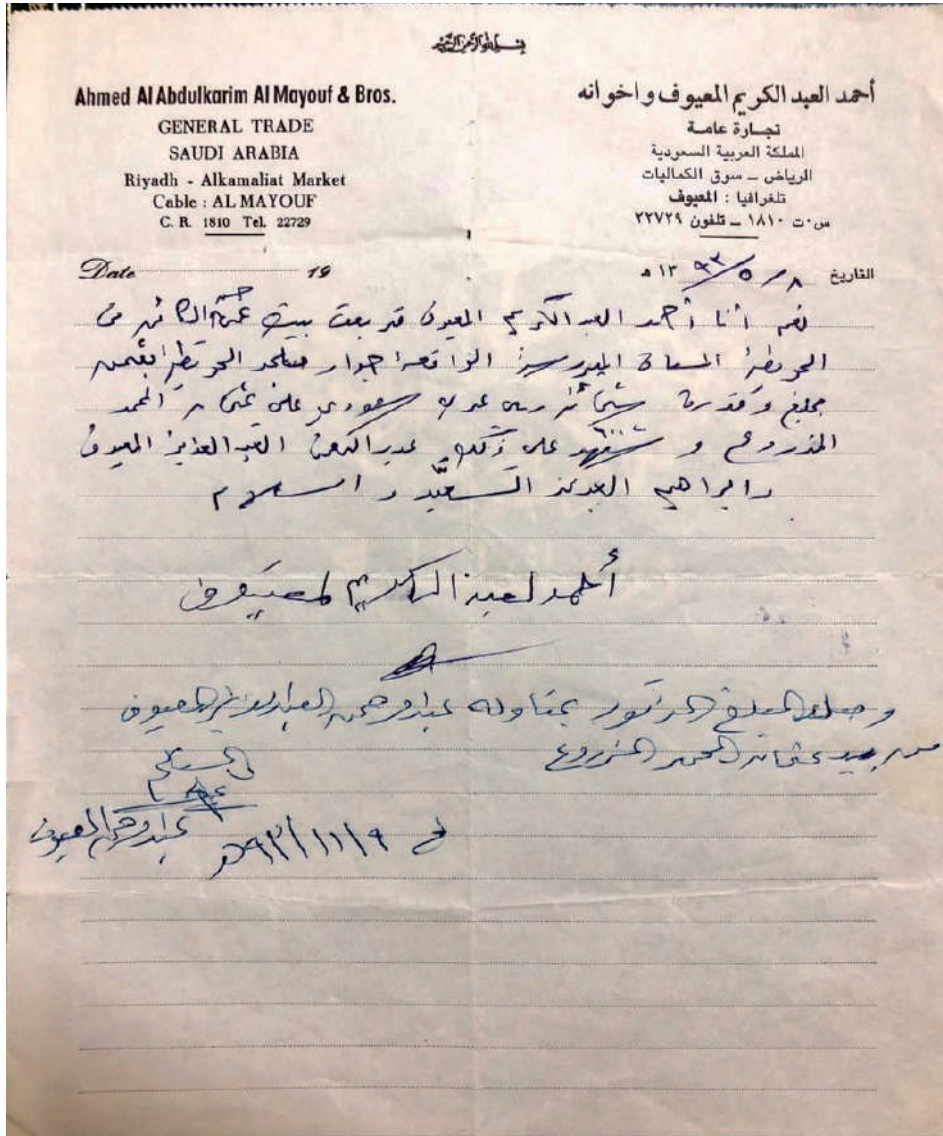 بسم الله الرحمن الرحيم
Ahmed Al Abdulkarim Al Mayouf & Bros.
GENERAL TRADE
SAUDI ARABIA
Riyadh - Alkamaliat Market
Cable : AL MAYOUF
C. R. 1810 Tel. 22729
أحمد العبد الكريم المعيوف واخوانه
تجارة عامة
المملكة العربية السعودية
الرياض – سوق الكماليات
تلغرافيا : المعيوف
س.ت ١٨١٠ – تلفون ٢٢٧٢٩
Date 19
التاريخ ٨ / ٥ / ١٣٩٣ هـ
نعم أنا أحمد العبدالكريم المعيوف قد بعت بيت عمتي الكائن في
المسماة الواقعة جوار
مبلغ وقدره ريال عربي سعودي على المحمد
المزروع و ٦٠٠ شهد على ذلك عبدالرحمن العبدالعزيز المعيوف
وابراهيم السعيد والسلام
أحمد العبدالكريم المعيوف
وصلنا المبلغ المذكور بمناولة عبدالرحمن العبدالعزيز المعيوف
من يد المحمد المزروع
عبدالرحمن المعيوف
في ٩/١١/٩٣هـ